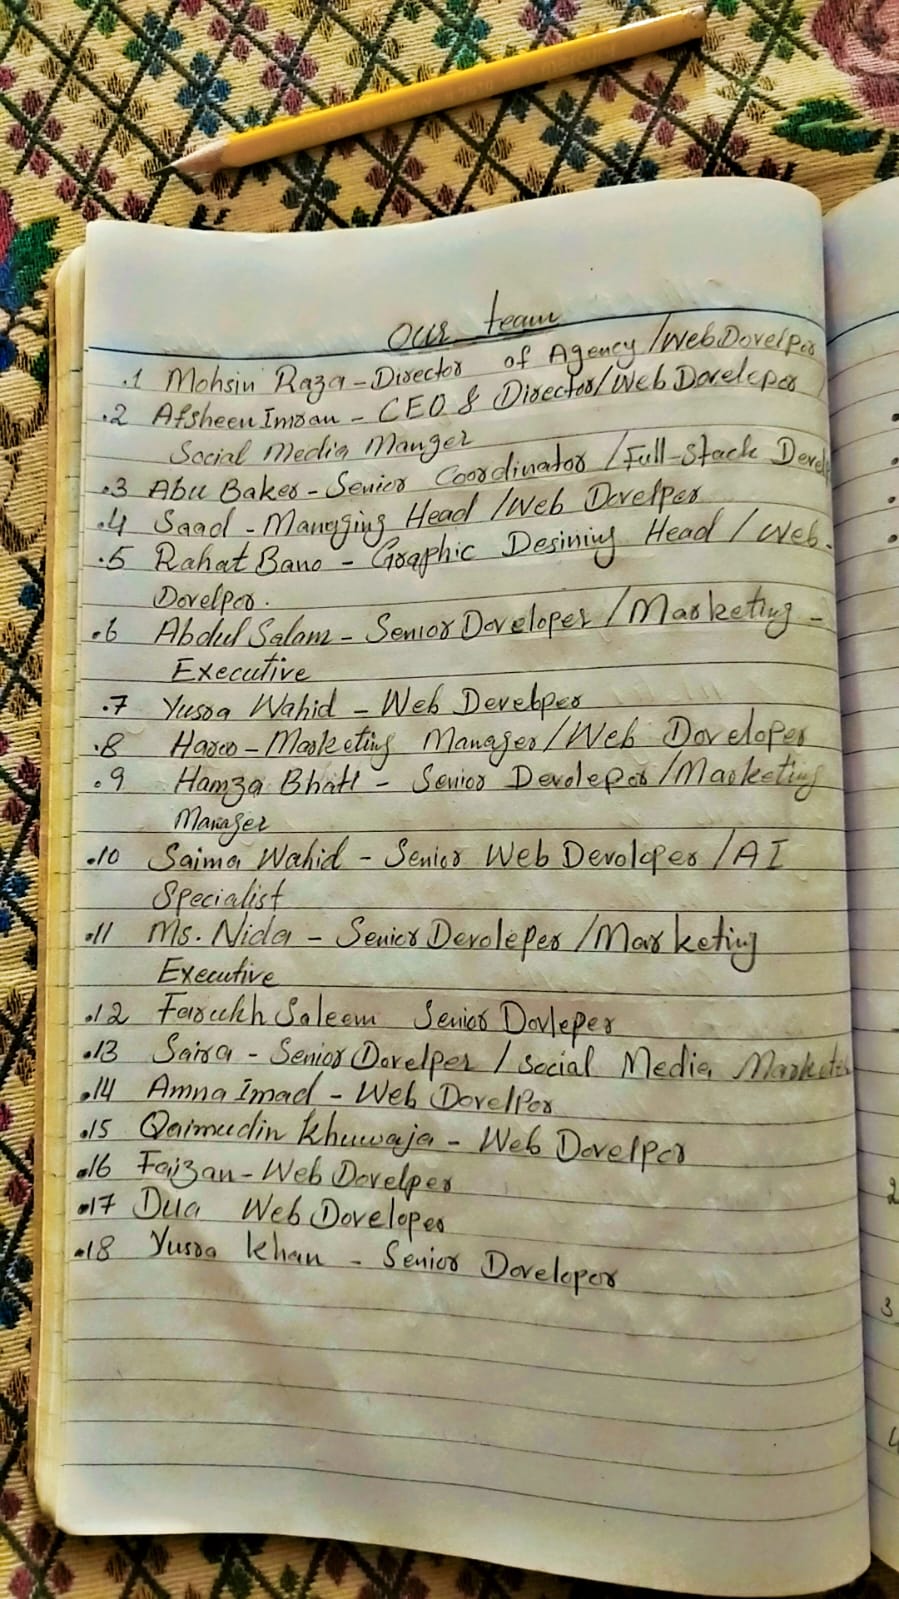 our team
.1 Mohsin Raza - Director of Agency / Web Dovelper
.2 Afsheen Imran - CEO & Director / Web Doveleper /
Social Media Manger
.3 Abu Baker - Senior Coordinator / Full-Stack Develp
.4 Saad - Managing Head / Web Dovelper
.5 Rahat Bano - Graphic Desining Head / Web -
Dovelper.
.6 Abdul Salam - Senior Doveloper / Marketing -
Executive
.7 Yusra Wahid - Web Develper
.8 - Marketing Manager / Web Doveloper
.9 Hamza Bhatt - Senior Devoleper / Marketing
Manager
.10 Saima Wahid - Senior Web Devoloper / AI
Specialist
.11 Ms. Nida - Senior Devoleper / Marketing
Executive
.12 Farukh Saleem Senior Dovleper
.13 Saira - Senior Dovelper / Social Media Marketer
.14 Amna Imad - Web Dovelper
.15 Qaimudin Khuwaja - Web Dovelper
.16 Faizan - Web Dovelper
.17 Dua Web Doveloper
.18 Yusra Khan - Senior Doveloper
2
3
4